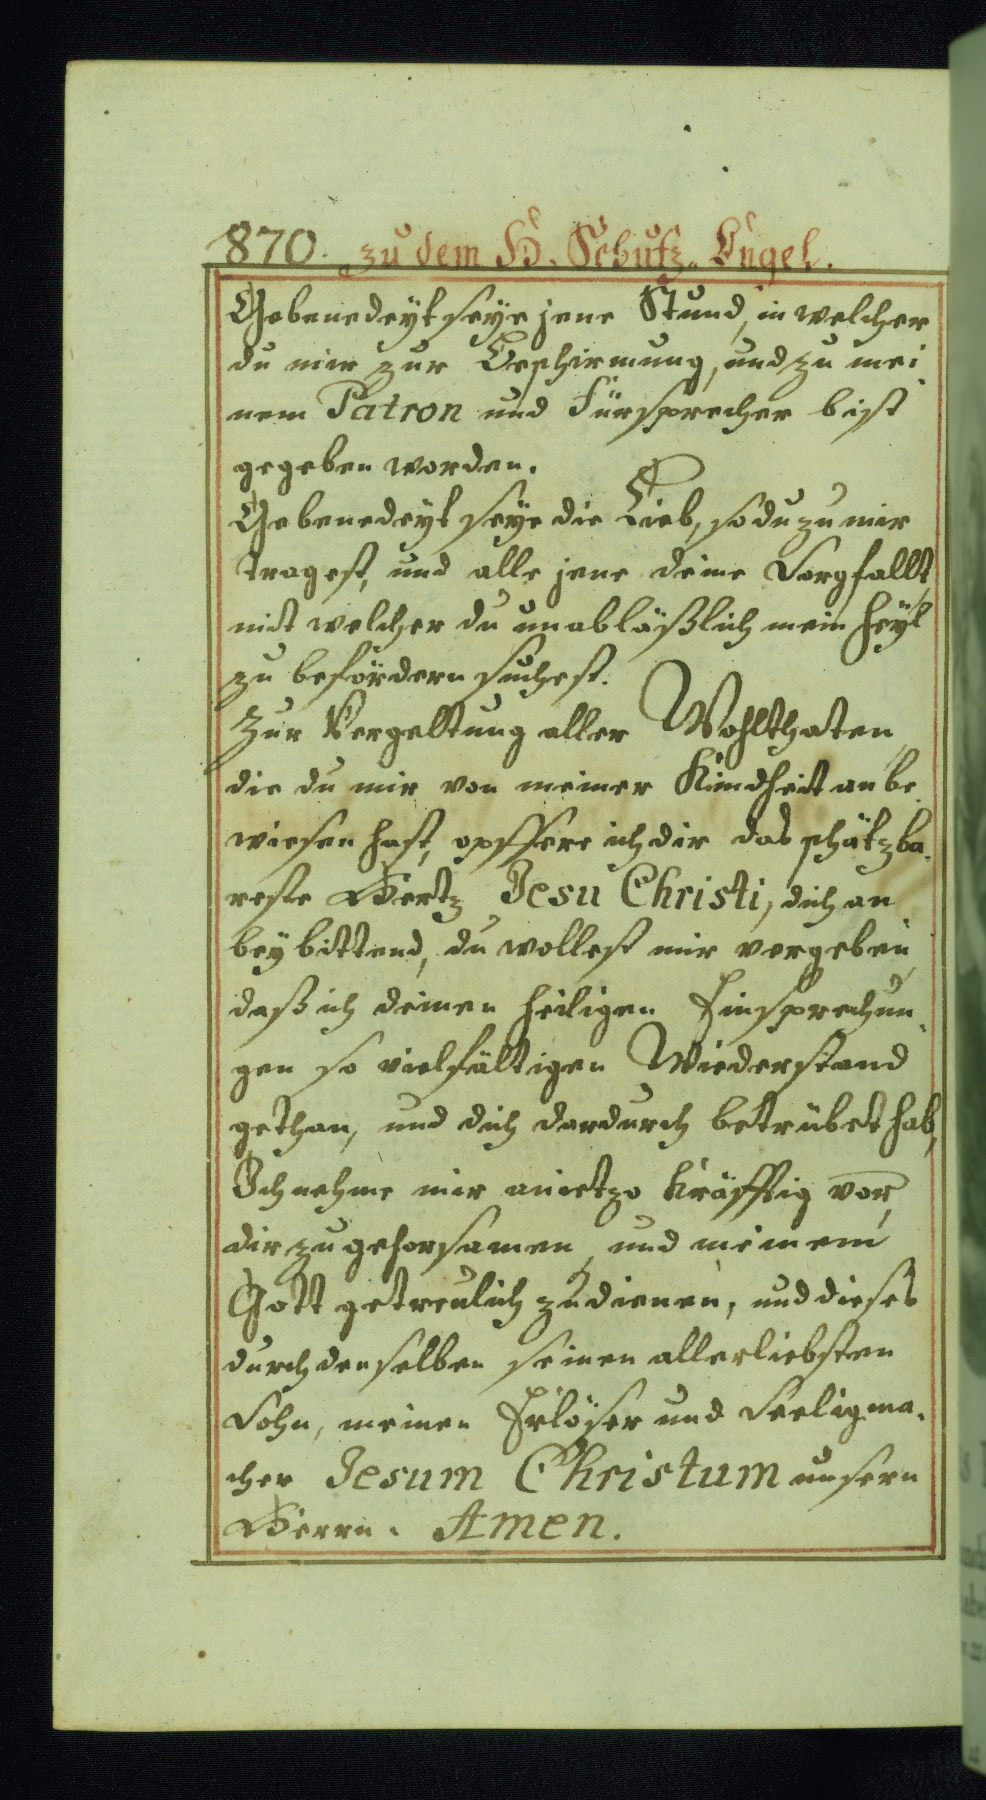 870. zu dem H. Schutz-Engel.
Gebenedeyt seye jene Stund, in welcher
du mir zur Beschirmung, und zu mei-
nem Patron und Fürsprecher bist
gegeben worden.
Gebenedeyt seye die Lieb, so du zu mir
tragest, und alle jene deine Sorgfallt,
mit welcher du unabläßlich mein Heyl
zu befördern suchest.
Zur Vergeltung aller Wohlthaten,
die du mir von meiner Kindheit an be-
wiesen hast, opffere ich dir das schätzba-
reste Hertz Jesu Christi, dich an
bey bittend, du wollest mir vergeben,
daß ich deinen heiligen Einsprechun-
gen so vielfältigen Wiederstand
gethan, und dich dardurch betrübet hab,
Ich nehme mir anietzo kräfftig vor,
dir zu gehorsamen, und meinem
Gott getreulich zu dienen, und dieses
durch denselben seinen allerliebsten
Sohn, meinen Erlöser und Seeligma-
cher Jesum Christum unsern
Herrn. Amen.